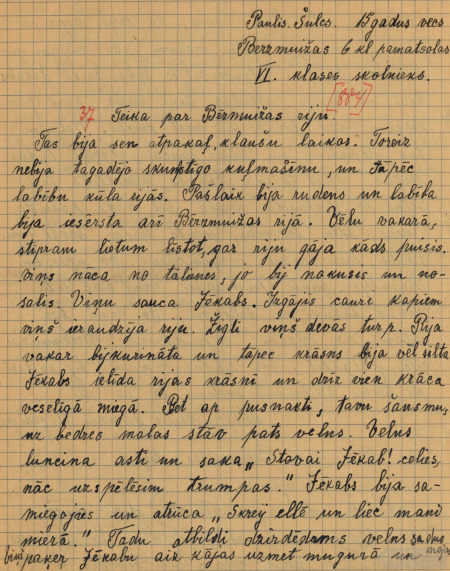 Paulis. Šulcs. 15 gadus vecs
Bērzmuižas 6 kl pamatsolas
VI. klases skolnieks.
[884]
37 Teika par Bērmuižas riju.
Tas bija sen atpakaļ, klaušu laikos. Toreiz
nebija tagadējo skunstīgo kuļmašīnu, un tāpēc
labību kūla rijās. Pašlaik bija rudens un labība
bija iesērsta arī Bērzmuižas rijā. Vēlu vakarā,
stipram lietum līstot, gar riju gāja kāds puisis.
Viņs nāca no tālienes, jo bij nokusis un no-
salis. Viņu sauca Jēkabs. Izgājis cauri kapiem
viņš ieraudzīja riju. Žigli viņš devās turp. Rija
vakar bij kurināta un tapec krāsns bija vēl silta
Jēkabs ielīda rijas krāsnī un dzīr vien krāca
veselīgā miegā. Bet ap pusnakti, tavu šausmu,
uz bedres malas stāv pats velns. Velns
luncina asti un saka „Stavai Jēkab! celies,
nāc uzspēlēsim trumpas." Jēkabs bija sa-
miegojies un atrūca „Skrej ellē un liec mani
mierā." Tādu atbildi dzirdēdams velns sadus
paķer Jēkabu aiz kājas uzmet mugurā un